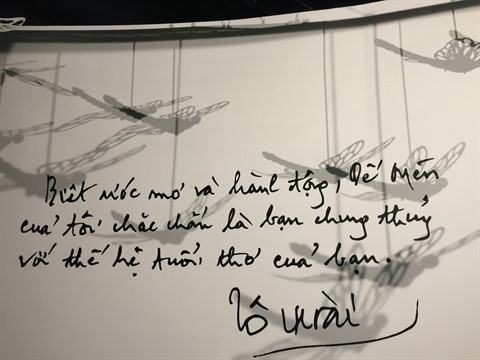 Biết ước mơ và hành động, Dế Mèn
của tôi chắc chắn là bạn chung thủy
với thế hệ tuổi thơ của bạn.
Tô Hoài